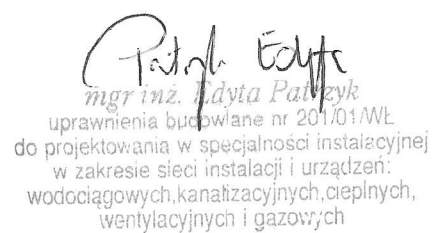 mgr inż. Edyta Patrzyk
uprawnienia budowlane nr 201/01/WŁ
do projektowania w specjalności instalacyjnej
w zakresie sieci instalacji i urządzeń:
wodociągowych,kanalizacyjnych,cieplnych,
wentylacyjnych i gazowych